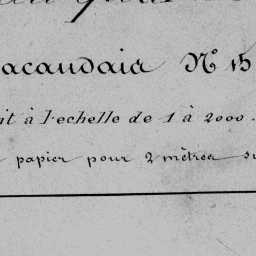 acaudais N° 15
it à l'echelle de 1 à 2000.
papier pour 2 mètres su